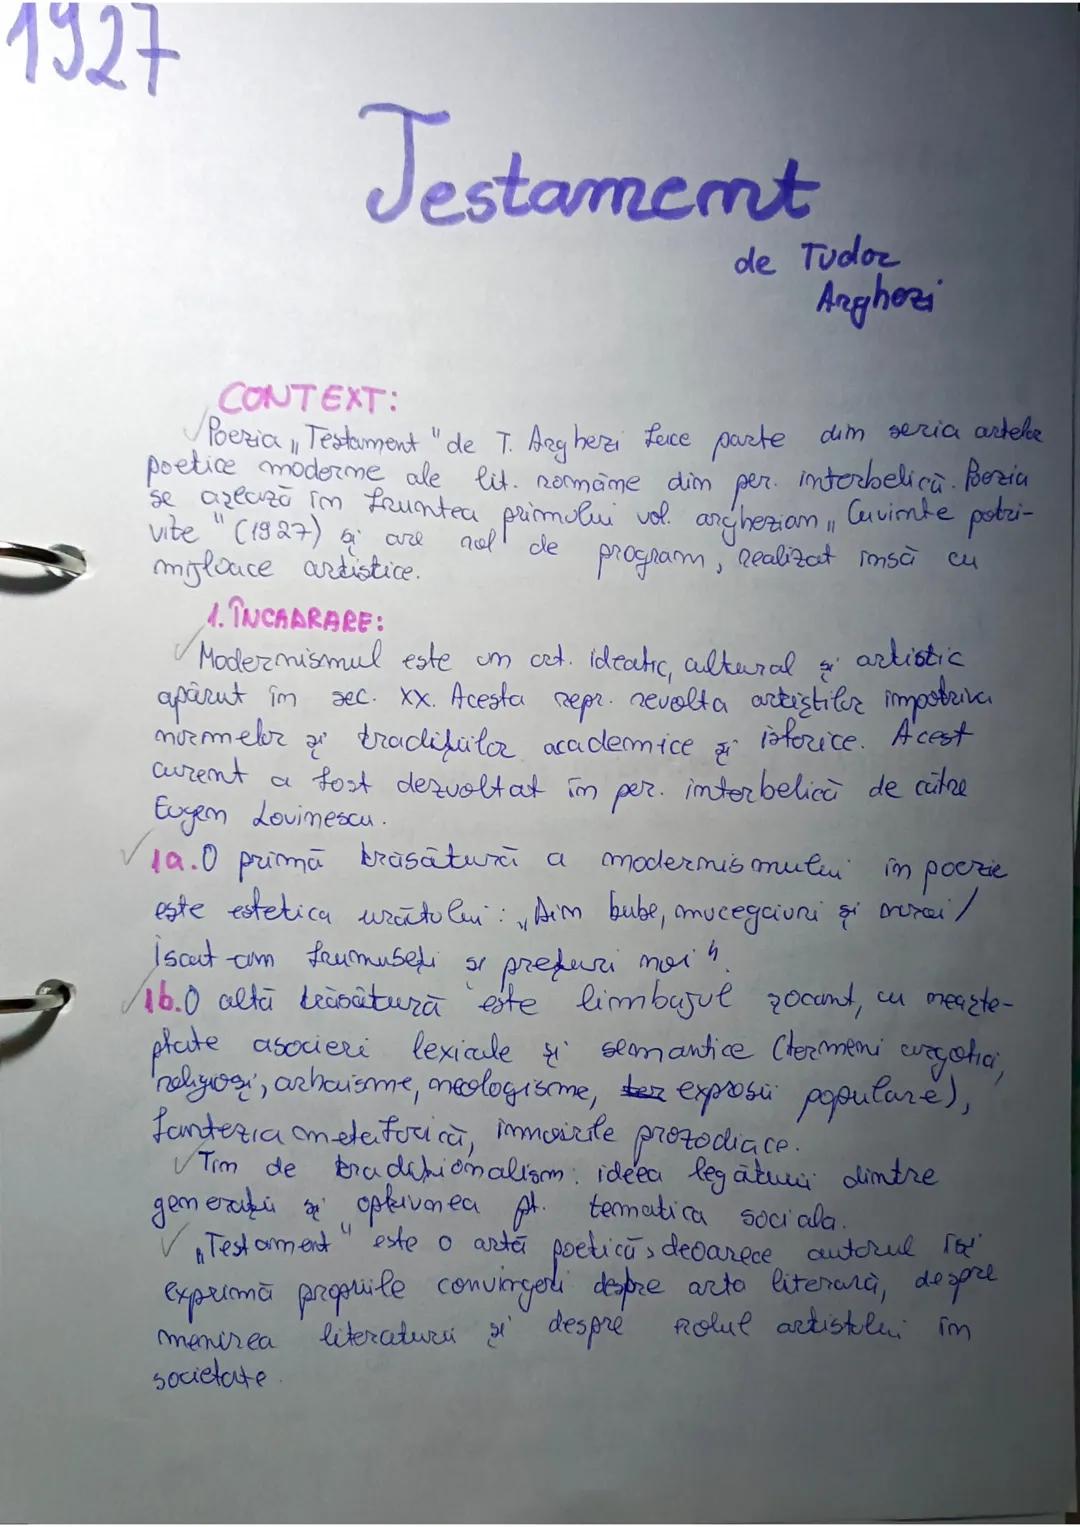 1927
Testament
de Tudor
Arghezi
CONTEXT:
Poezia „Testament" de T. Arghezi face parte din seria artelor
poetice moderne ale lit. române din per. interbelică. Poezia
se așează în fruntea primului vol. arghezian „Cuvinte potri-
vite" (1927) și are rol de program, realizat însă cu
mijloace artistice.
1. ÎNCADRARE:
Modernismul este un crt. ideatic, cultural și artistic
apărut în sec. XX. Acesta repr. revolta artiștilor împotriva
normelor și tradițiilor academice și istorice. Acest
curent a fost dezvoltat în per. interbelică de către
Eugen Lovinescu.
1a. O primă trăsătură a modernismului în poezie
este estetica urâtului: „Din bube, mucegaiuri și noroi/
Iscat-am frumuseți și prețuri noi".
1b. O altă trăsătură este limbajul șocant, cu neaște-
ptate asocieri lexicale și semantice (termeni argotici,
religioși, arhaisme, neologisme, expresii populare),
fantezia metaforică, înnoirile prozodiace.
Țin de tradiționalism: ideea legăturii dintre
generații și opțiunea pt. tematica socială.
„Testament" este o artă poetică, deoarece autorul își
exprimă propriile convingeri despre arta literară, despre
menirea literaturii și despre rolul artistului în
societate.